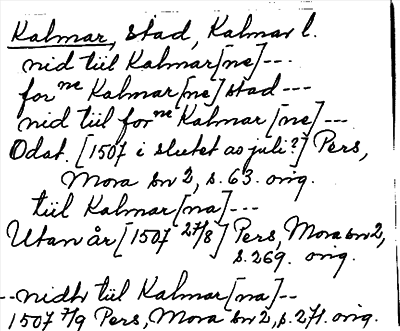 Kalmar, stad, Kalmar l.
nid till Kalmar[ne]---
for ne Kalmar[ne] stad---
nid till for ne Kalmar [ne]---
Odat. [1507 i slutet av juli?] Pers,
Mora bn 2, s. 63. orig.
till Kalmar[na]---
Utan år [1507 27/8] Pers, Mora bn 2,
s. 269. orig.
--nidh till Kalmar[na]--
1507 7/9 Pers, Mora bn 2, s. 271. orig.